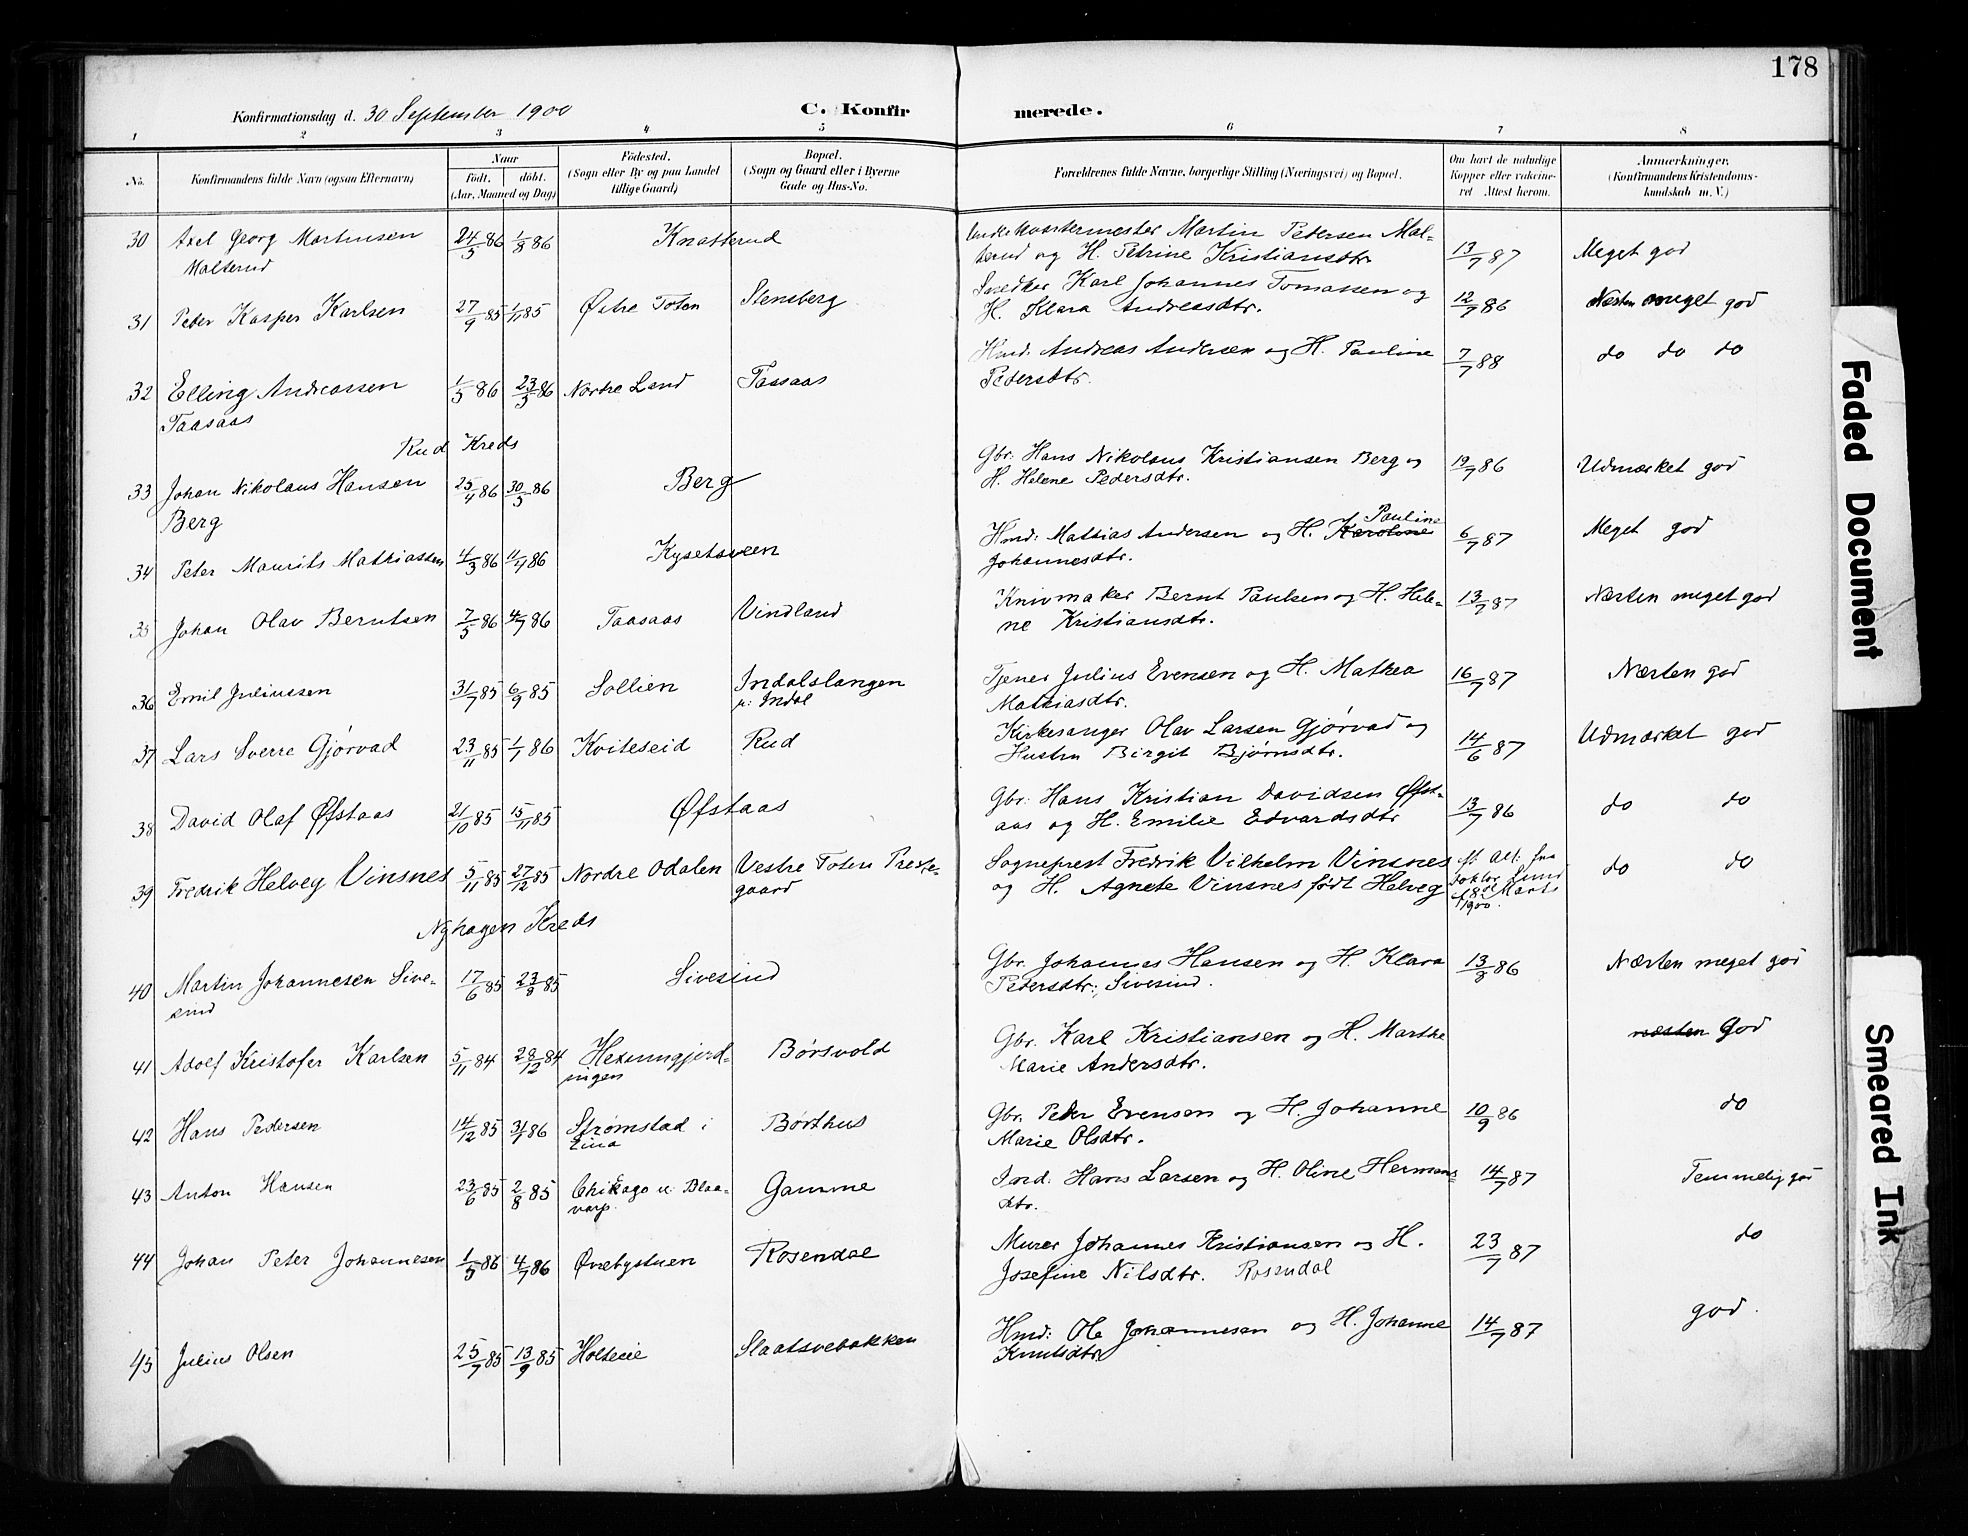 178
Konfirmationsdag d. 30 September 1900
C. Konfirmerede.
1 2 3 4 5 6 7 8
No.
Konfirmandens fulde Navn (ogsaa Efternavn)
Naar
Født. døbt.
(Aar, Maaned og Dag)
Fødested.
(Sogn eller By og paa Landet
tillige Gaard)
Bopæl.
(Sogn og Gaard eller i Byerne
Gade og Hus-No.
Forældrenes fulde Navne, borgerlige Stilling (Næringsvei) og Bopæl.
Om havt de naturlige
Kopper eller vakcine-
ret Attest herom.
Anmærkninger.
(Konfirmandens Kristendoms-
kundskab m. V.)
30 Axel Georg Martinsen 24/5 86 1/8 86 Knatterud Martin Petersen Mal- 13/7 87 Meget god
Malterud terud og H. Petrine Kristiansdtr
31 Peter Kasper Karlsen 27/9 85 1/11 85 Østre Toten Stensberg Snedker Karl Johannes Tomassen og 12/7 86 Næsten meget god
H. Klara Andreasdtr.
32 Elling Andreassen 1/5 86 23/5 86 Nordre Land Taasaas Hmd. Andreas Andersen og H. Pauline 7/7 88 do do do
Taasaas Pedersdtr.
Rud Kreds
33 Johan Nikolaus Hansen 25/4 86 30/5 86 Berg Gbr. Hans Nikolaus Kristiansen Berg og 19/7 86 Udmærket god
Berg H. Helene Pedersdtr.
34 Peter Maurits Mathiassen 4/3 86 11/7 86 Kysetsveen Hmd: Mathias Andersen og H. Karoline Pauline 6/7 87 Meget god
Johannesdtr.
35 Johan Olav Berntsen 7/5 86 4/7 86 Taasaas Vindland Knivmaker Bernt Paulsen og H. Hele- 13/7 87 Næsten meget god
ne Kristiansdtr.
36 Emil Juliussen 31/7 85 6/9 85 Sollien Indalslangen Tjener Julius Evensen og H. Mathea 16/7 87 Næsten god
u: Indal Mathiasdtr.
37 Lars Sverre Gjørvad 23/11 85 1/7 86 Kviteseid Rud Kirkesanger Olav Larsen Gjørvad og 14/6 87 Udmærket god
Hustru Birgit Bjørnsdtr.
38 David Olaf Øfstaas 21/10 85 15/11 85 Øfstaas Gbr: Hans Kristian Davidsen Øfst- 13/7 86 do do
aas og H. Emilie Edvardsdtr
39 Fredrik Helveg Vinsnes 5/11 85 27/12 85 Nordre Odalen Vestre Toten Preste- Sogneprest Fredrik Vilhelm Vinsnes Att. fra do do
gaard og H. Agnete Vinsnes født Helveg doktor Lund
Marts
1900.
Nyhagen Kreds
40 Martin Johannesen Sive- 17/6 85 23/8 85 Sivesind Gbr. Johannes Hansen og H. Klara 13/8 86 Næsten meget god
sind Pedersdtr:, Sivesind.
41 Adolf Kristofer Karlsen 5/11 84 28/12 84 Hexumgjerd- Børsvold Gbr. Karl Kristiansen og H. Marthe næsten God
ningen Marie Andersdtr.
42 Hans Pedersen 14/12 85 31/1 86 Strømstad i Børthus Gbr. Peder Evensen og H. Johanne 10/9 86 do
Eina Marie Olsdtr.
43 Anton Hansen 23/6 85 2/8 85 Chikago u: Blaa- Gamme Ind. Hans Larsen og H. Oline Hermans- 14/7 87 Temmelig god
varp. dtr.
44 Johan Peter Johannesen 1/5 86 4/7 86 Øvrebystuen Rosendal Murer Johannes Kristiansen og H. 23/7 87 do
Josefine Nilsdtr. Rosendal
45 Julius Olsen 25/7 85 13/9 85 Holteeie Slaatsvebakken Hmd: Ole Johannesen og H. Johanne 14/7 87 god.
Knutsdtr
Faded Document
Smeared Ink